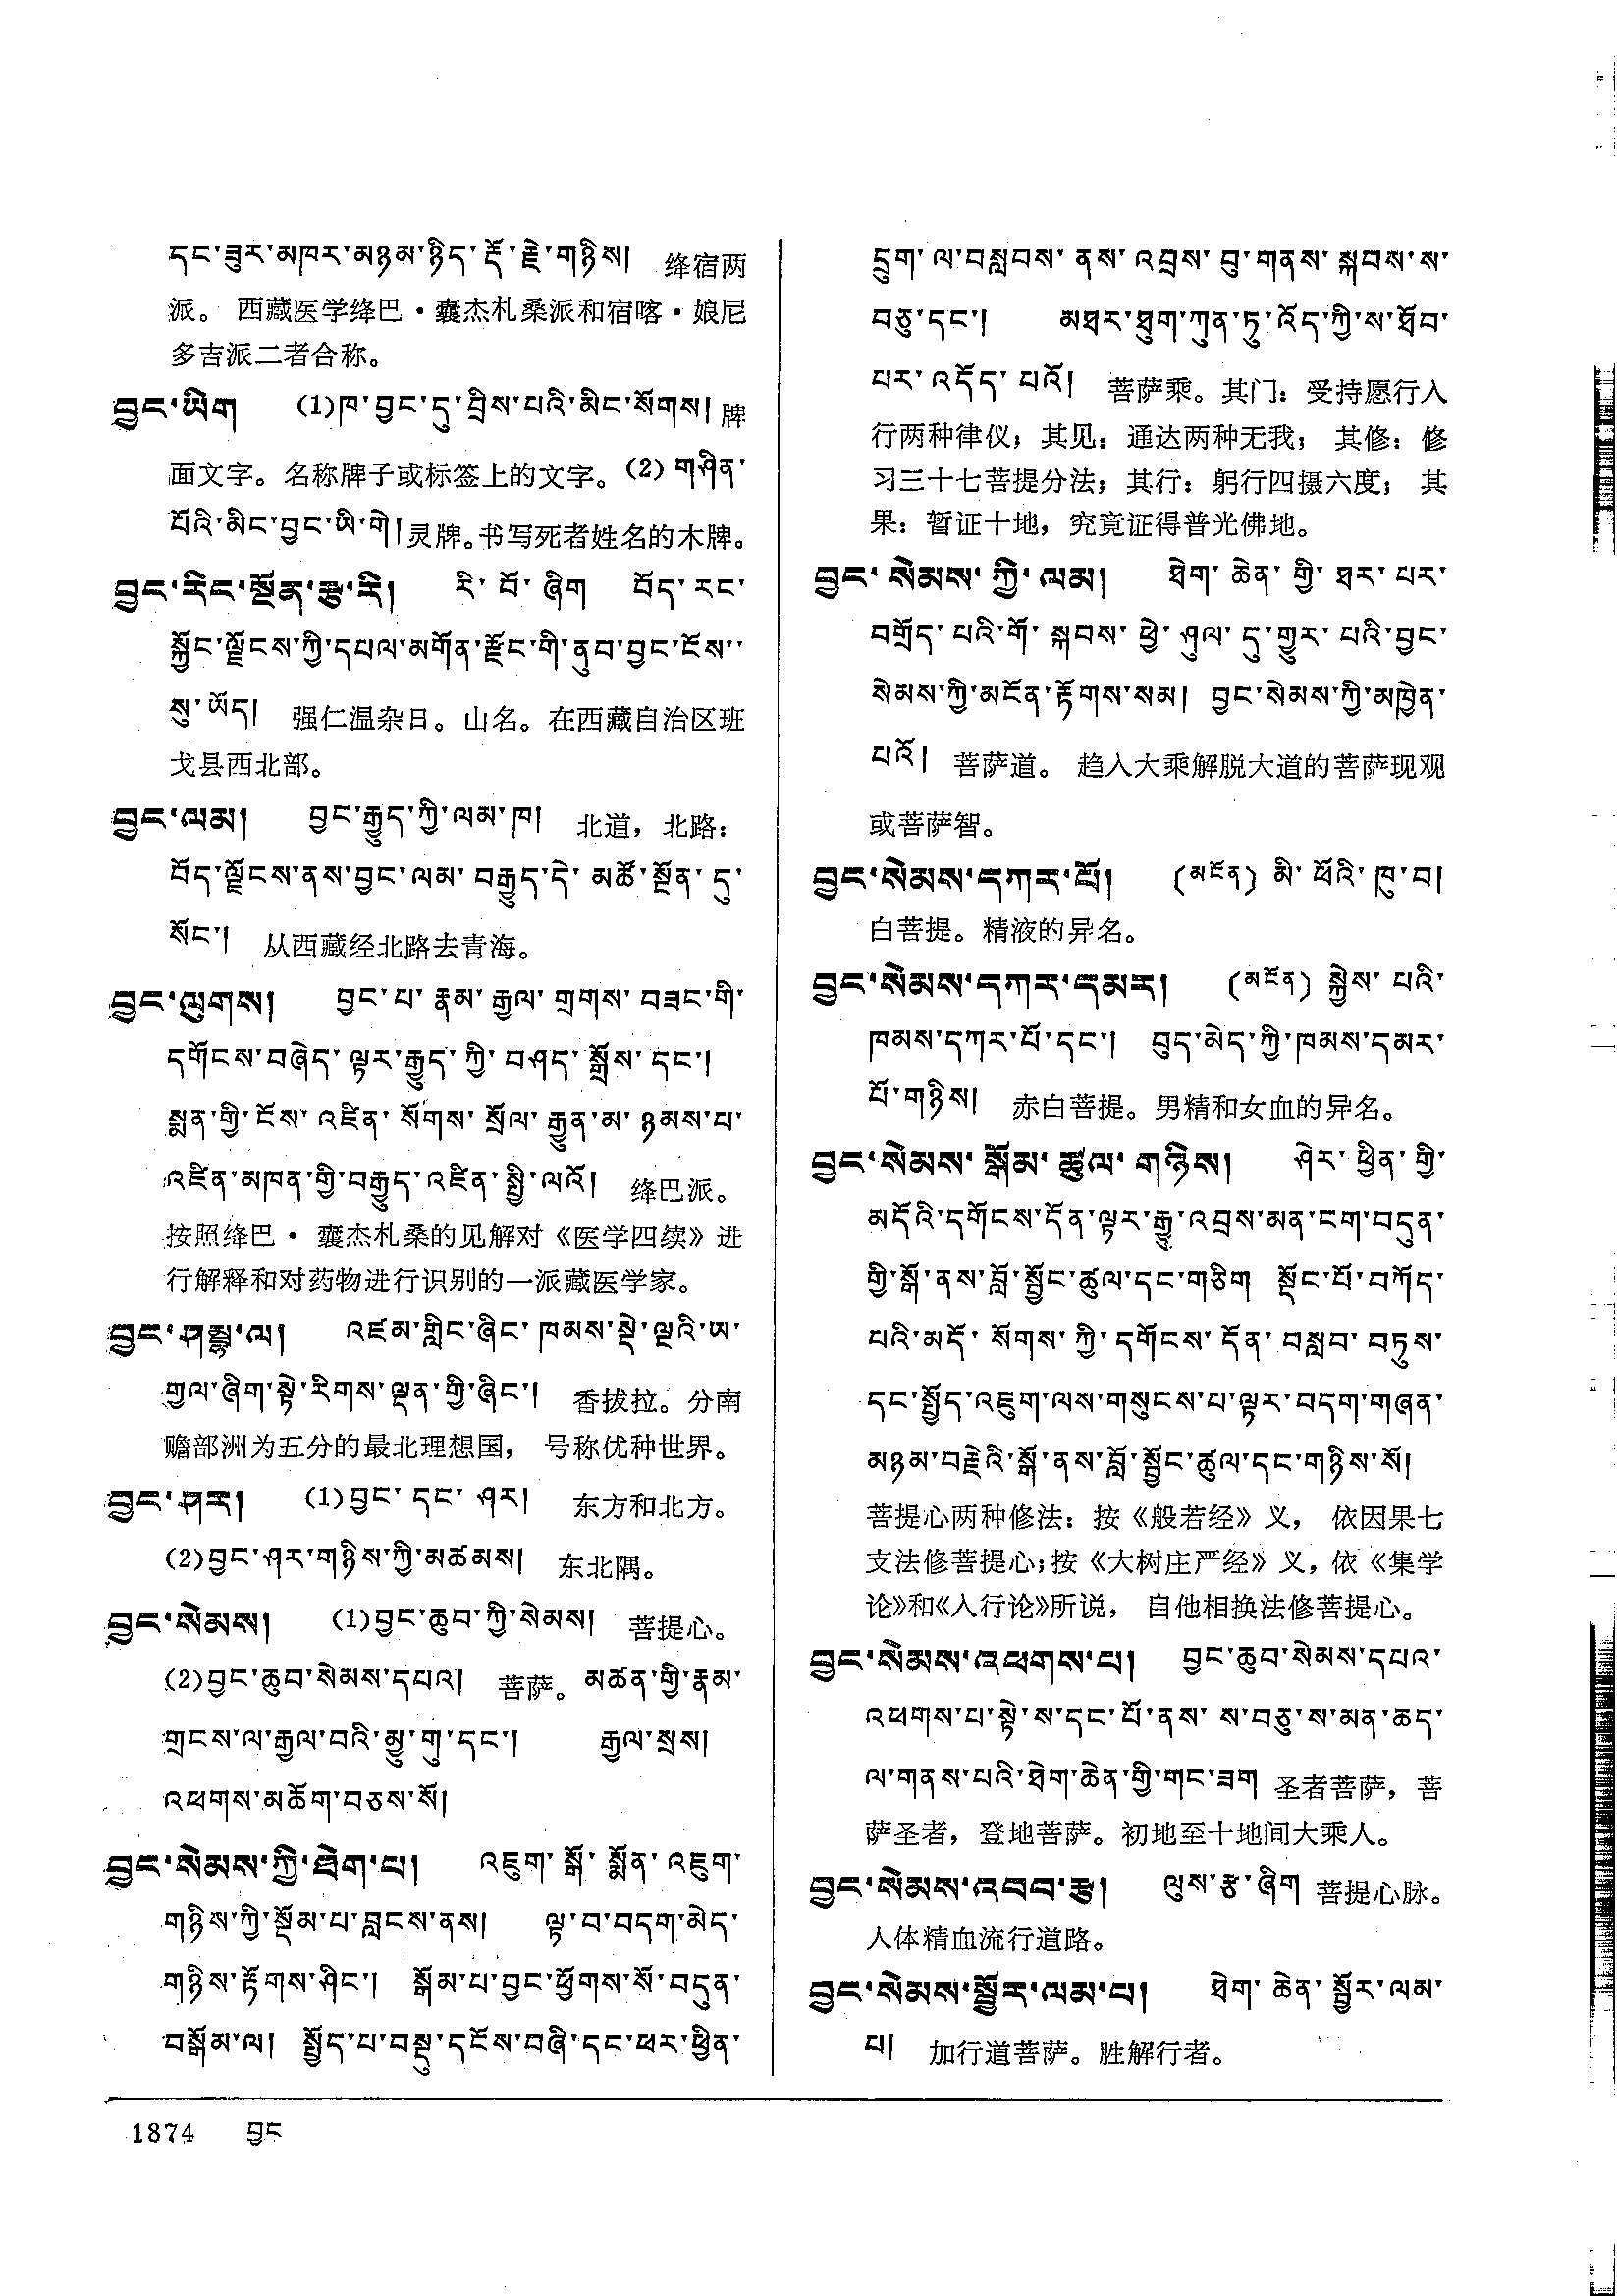 དང་ཟུར་མཁར་མཉམ་ཉིད་རྡོ་རྗེ་གཉིས། 绛宿两
派。 西藏医学绛巴·囊杰札桑派和宿喀·娘尼
多吉派二者合称。
བྱང་ཡིག (1)ཁ་བྱང་དུ་བྲིས་པའི་མིང་སོགས། 牌
面文字。名称牌子或标签上的文字。(2) གཤིན་
པོའི་མིང་བྱང་ཨི་གེ། 灵牌。书写死者姓名的木牌。
བྱང་རིང་སྔོན་རྩྭ་རི། རི་བོ་ཞིག བོད་རང་
སྐྱོང་ལྗོངས་ཀྱི་དཔལ་མགོན་རྫོང་གི་ནུབ་བྱང་ངོས་
སུ་ཡོད། 强仁温杂日。山名。在西藏自治区班
戈县西北部。
བྱང་ལམ། བྱང་རྒྱུད་ཀྱི་ལམ་ཁ། 北道，北路：
བོད་ལྗོངས་ནས་བྱང་ལམ་བརྒྱུད་དེ་མཚོ་སྔོན་དུ་
སོང་། 从西藏经北路去青海。
བྱང་ལུགས། བྱང་པ་རྣམ་རྒྱལ་གྲགས་བཟང་གི་
དགོངས་བཞེད་ལྟར་རྒྱུད་ཀྱི་བཤད་སྒྲོས་དང་།
སྨན་གྱི་ངོས་འཛིན་སོགས་སྲོལ་རྒྱུན་མ་ཉམས་པ་
འཛིན་མཁན་གྱི་བརྒྱུད་འཛིན་སྤྱི་ལའོ། 绛巴派。
按照绛巴· 囊杰札桑的见解对《医学四续》进
行解释和对药物进行识别的一派藏医学家。
བྱང་ཤམྦྷ་ལ། འཛམ་གླིང་ཞིང་ཁམས་སྡེ་ལྔའི་ཨ་
གྱལ་ཞིག་སྟེ་རིགས་ལྡན་གྱི་ཞིང་། 香拔拉。分南
赡部洲为五分的最北理想国， 号称优种世界。
བྱང་ཤར། (1)བྱང་དང་ཤར། 东方和北方。
(2)བྱང་ཤར་གཉིས་ཀྱི་མཚམས། 东北隅。
བྱང་སེམས། (1)བྱང་ཆུབ་ཀྱི་སེམས། 菩提心。
(2)བྱང་ཆུབ་སེམས་དཔའ། 菩萨。མཚན་གྱི་རྣམ་
གྲངས་ལ་རྒྱལ་བའི་མྱུ་གུ་དང་། རྒྱལ་སྲས།
འཕགས་མཆོག་བཅས་སོ།
བྱང་སེམས་ཀྱི་ཐེག་པ། འཇུག་སྒོ་སྨོན་འཇུག་
གཉིས་ཀྱི་སྡོམ་པ་བླངས་ནས། ལྟ་བ་བདག་མེད་
གཉིས་རྟོགས་ཤིང་། སྒོམ་པ་བྱང་ཕྱོགས་སོ་བདུན་
བསྒོམ་ལ། སྤྱོད་པ་བསྡུ་དངོས་བཞི་དང་ཕར་ཕྱིན་
དྲུག་ལ་བསླབས་ནས་འབྲས་བུ་གནས་སྐབས་ས་
བཅུ་དང་། མཐར་ཐུག་ཀུན་ཏུ་འོད་ཀྱི་ས་ཐོབ་
པར་འདོད་པའོ། 菩萨乘。其门：受持愿行入
行两种律仪；其见：通达两种无我； 其修：修
习三十七菩提分法；其行：躬行四摄六度； 其
果：暂证十地，究竟证得普光佛地。
བྱང་སེམས་ཀྱི་ལམ། ཐེག་ཆེན་གྱི་ཐར་པར་
བགྲོད་པའི་གོ་སྐབས་ཕྱེ་ཤུལ་དུ་གྱུར་པའི་བྱང་
སེམས་ཀྱི་མངོན་རྟོགས་སམ། བྱང་སེམས་ཀྱི་མཁྱེན་
པའོ། 菩萨道。 趋入大乘解脱大道的菩萨现观
或菩萨智。
བྱང་སེམས་དཀར་པོ། (མངོན) མི་ཕོའི་ཁུ་བ།
白菩提。精液的异名。
བྱང་སེམས་དཀར་དམར། (མངོན) སྐྱེས་པའི་
ཁམས་དཀར་པོ་དང་། བུད་མེད་ཀྱི་ཁམས་དམར་
པོ་གཉིས། 赤白菩提。男精和女血的异名。
བྱང་སེམས་སྒོམ་ཚུལ་གཉིས། ཤེར་ཕྱིན་གྱི་
མདོའི་དགོངས་དོན་ལྟར་རྒྱུ་འབྲས་མན་ངག་བདུན་
གྱི་སྒོ་ནས་བློ་སྦྱོང་ཚུལ་དང་གཅིག སྡོང་པོ་བཀོད་
པའི་མདོ་སོགས་ཀྱི་དགོངས་དོན་བསླབ་བཏུས་
དང་སྤྱོད་འཇུག་ལས་གསུངས་པ་ལྟར་བདག་གཞན་
མཉམ་བརྗེའི་སྒོ་ནས་བློ་སྦྱོང་ཚུལ་དང་གཉིས་སོ།
菩提心两种修法：按《般若经》义， 依因果七
支法修菩提心；按《大树庄严经》义，依《集学
论》和《入行论》所说， 自他相换法修菩提心。
བྱང་སེམས་འཕགས་པ། བྱང་ཆུབ་སེམས་དཔའ་
འཕགས་པ་སྟེ་ས་དང་པོ་ནས་ས་བཅུ་ས་མན་ཆད་
ལ་གནས་པའི་ཐེག་ཆེན་གྱི་གང་ཟག 圣者菩萨，菩
萨圣者，登地菩萨。初地至十地间大乘人。
བྱང་སེམས་འབབ་རྩ། ལུས་རྩ་ཞིག 菩提心脉。
人体精血流行道路。
བྱང་སེམས་སྦྱོར་ལམ་པ། ཐེག་ཆེན་སྦྱོར་ལམ་
པ། 加行道菩萨。胜解行者。
1874 བྱང